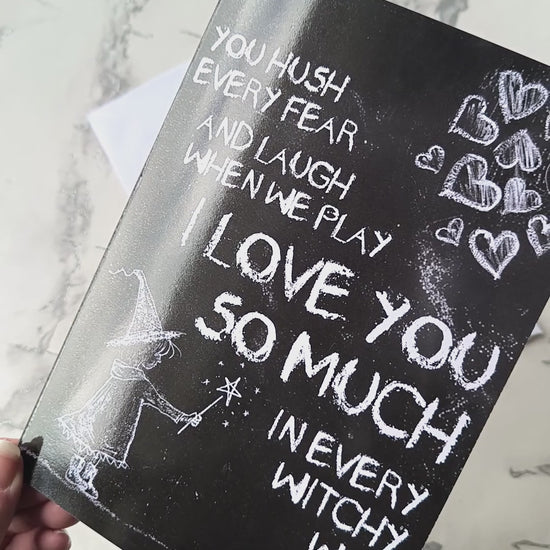 YOU HUSH
EVERY FEAR
AND LAUGH
WHEN WE PLAY
I LOVE YOU
SO MUCH
IN EVERY
WITCHY